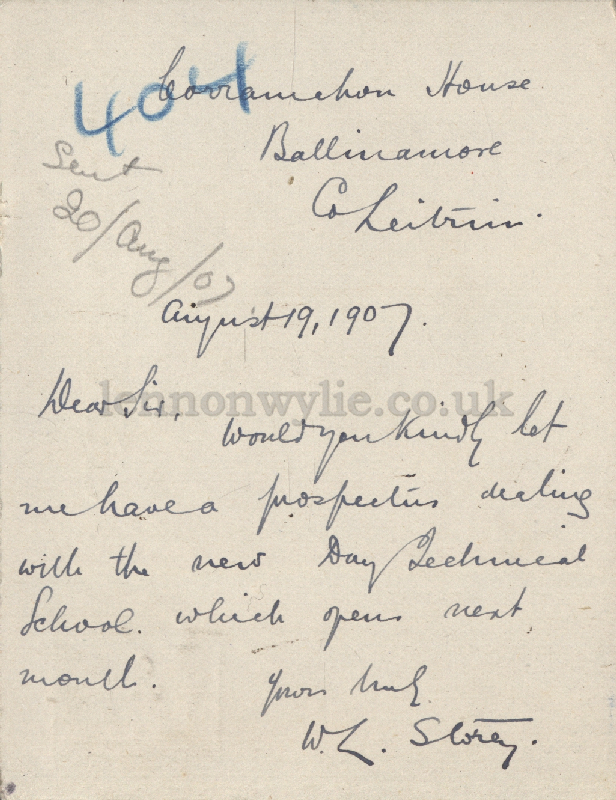 404
Corramahon House
Ballinamore
Co Leitrim.
Sent
20/Aug/07
August 19, 1907.
lennonwylie.co.uk
Dear Sir,
Would you kindly let
me have a prospectus dealing
with the new Day Technical
School. which opens next
month.
Yours truly
W. L. Storey.